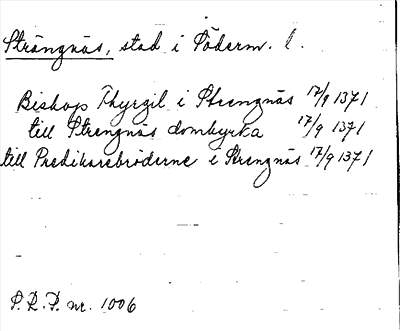 Strängnäs, stad i Söderm. l.
Biskop Thyrgil i Strengnäs 17/9 1371
till Strengnäs domkyrka 17/9 1371
till Predikarebröderne i Strengnäs 17/9 1371
S.R.P. nr. 1006